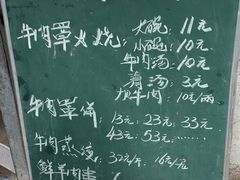 牛肉罩火烧: 大碗: 11元
小碗: 10元
牛肉汤: 10元
清汤: 3元
加牛肉: 10元/两
牛肉罩饼: 13元: 23元: 33元
43元: 53元
牛肉蒸饺: 32元/斤 16元/半斤
鲜羊肉串: